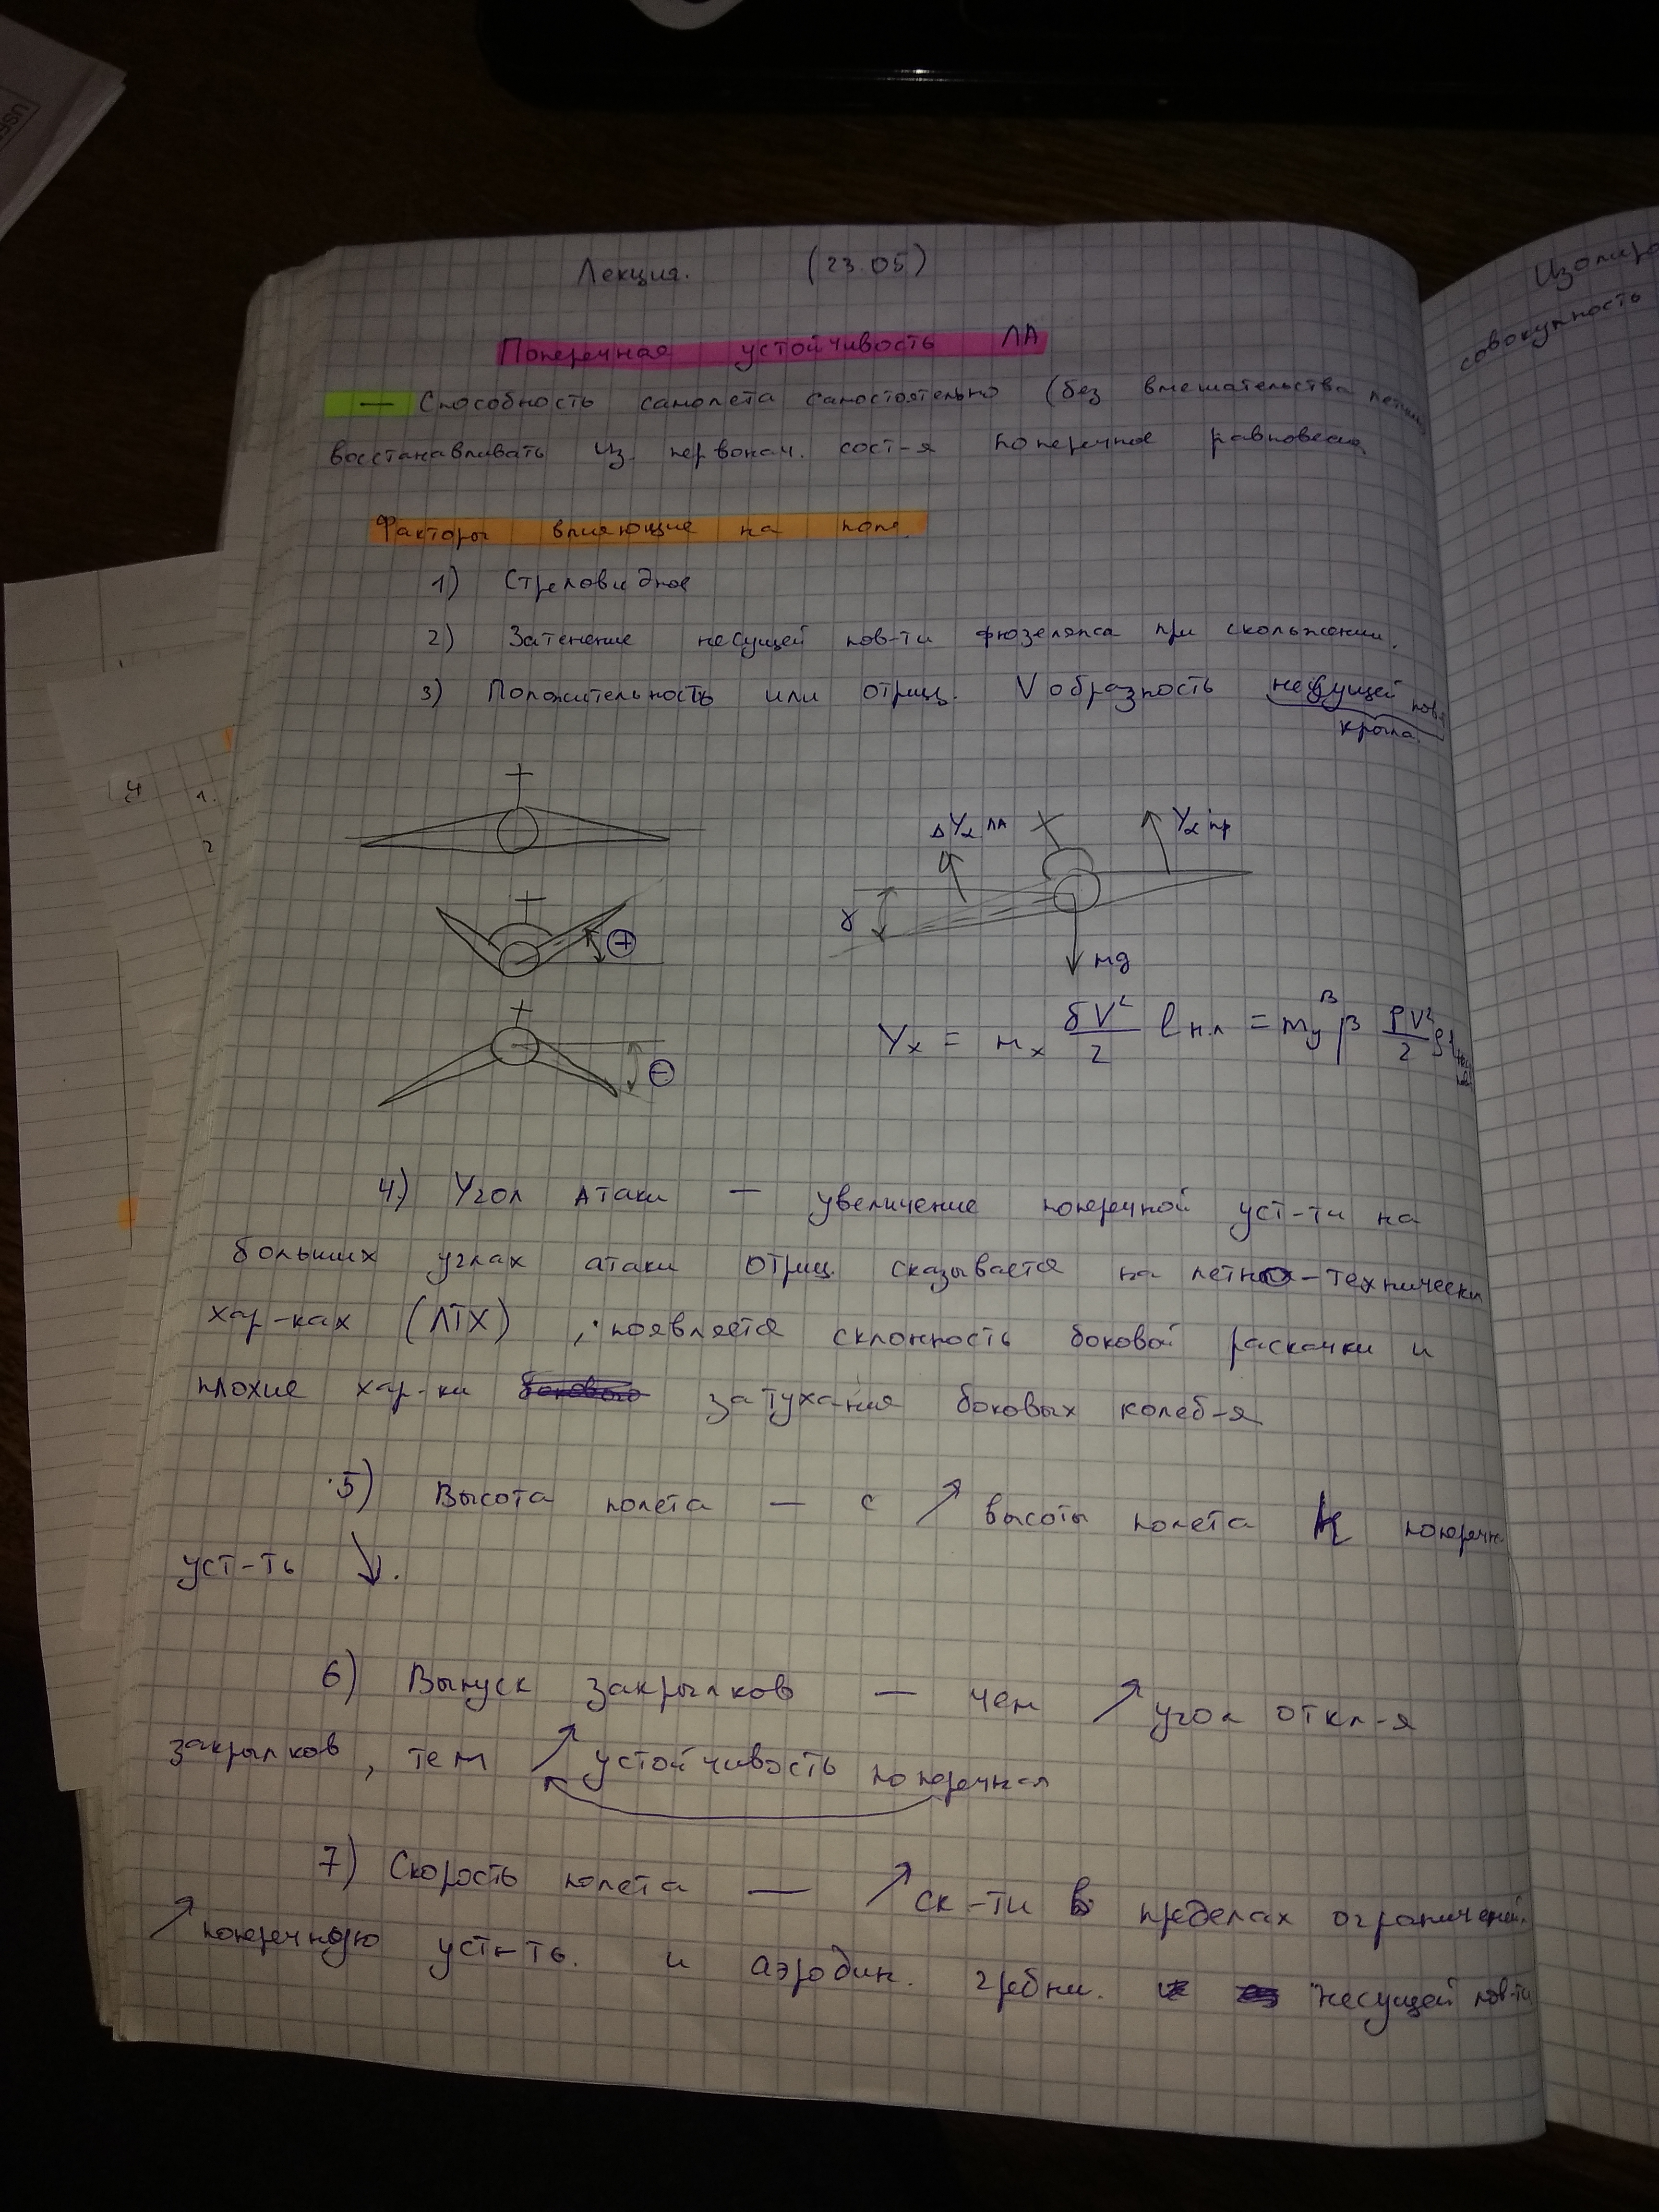 Лекция. (23.05)
Поперечная устойчивость ЛА
— Способность самолета самостоятельно (без вмешательства
восстанавливать из первонач. сост-я поперечное равновесие
Факторы влияющие на
1) Стреловидное
2) Затенение несущей пов-ти фюзеляжа при скольжении.
3) Положительность или отриц. V образность несущей пов-
крыла.
ΔYα ЛА Yα пр
+
γ
mg
Yx = mx δV² / 2 lн.л = my^β β ρV² / 2 Sl
−
4.) Угол атаки — увеличение поперечной уст-ти на
больших углах атаки отриц. сказывается на летно-технически
хар-ках (ЛТХ), появляется склонность боковой раскачки и
плохие хар-ки затухания боковых колеб-я
5) Высота полета — с ↗ высоты полета попереч
уст-ть ↘.
6) Выпуск закрылков — чем ↗ угол откл-я
закрылков, тем ↗ устойчивость поперечная
7) Скорость полета — ↗ ск-ти в пределах ограничений
↗ поперечную уст-ть. и аэродин. гребни. несущей пов-ти
Изолиро
совокупность
4 1.
2
USE